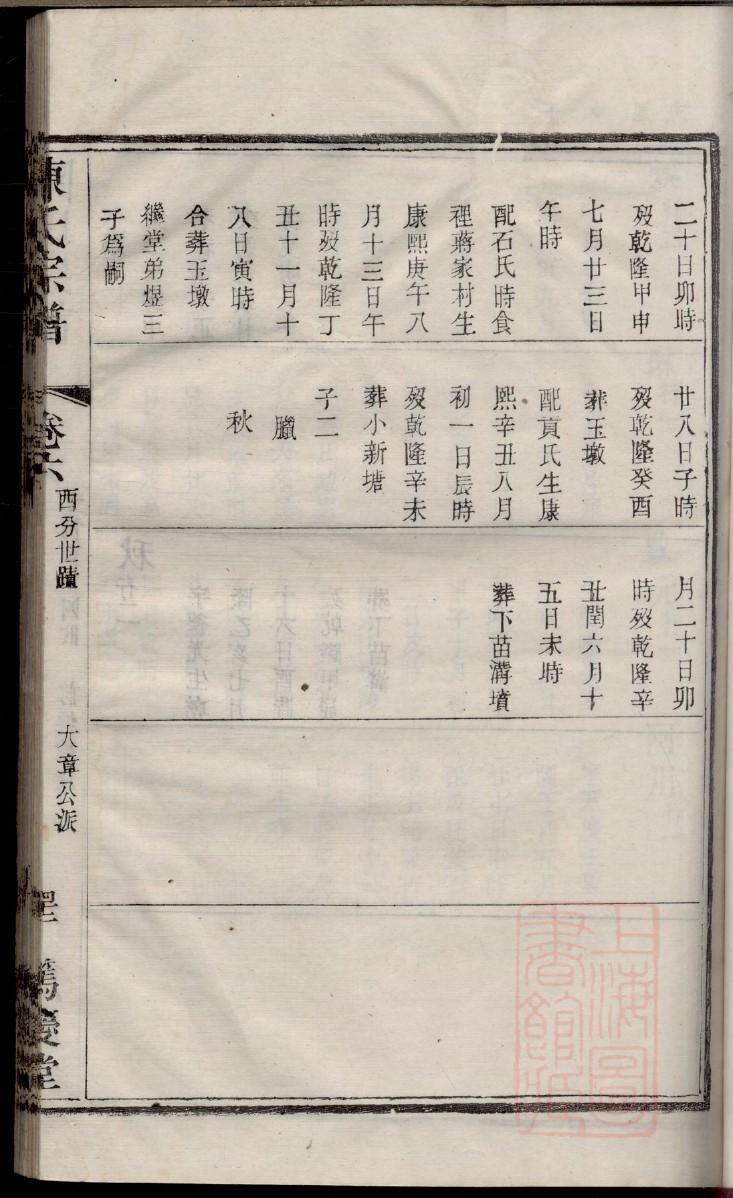 二十日卯時
歿乾隆甲申
七月廿三日
午時
配石氏時食
裡蔣家村生
康熙庚午八
月十三日午
時歿乾隆丁
丑十一月十
八日寅時
合葬玉墩
繼堂弟煜三
子爲嗣
廿八日子時
歿乾隆癸酉
葬玉墩
配貢氏生康
熙辛丑八月
初一日辰時
歿乾隆辛未
葬小新塘
子二
臘
秋
月二十日卯
時歿乾隆辛
丑閏六月十
五日未時
葬下苗溝墳
陳氏宗譜
卷六
西分世蹟
大章公派
篤慶堂
上海圖
書館藏